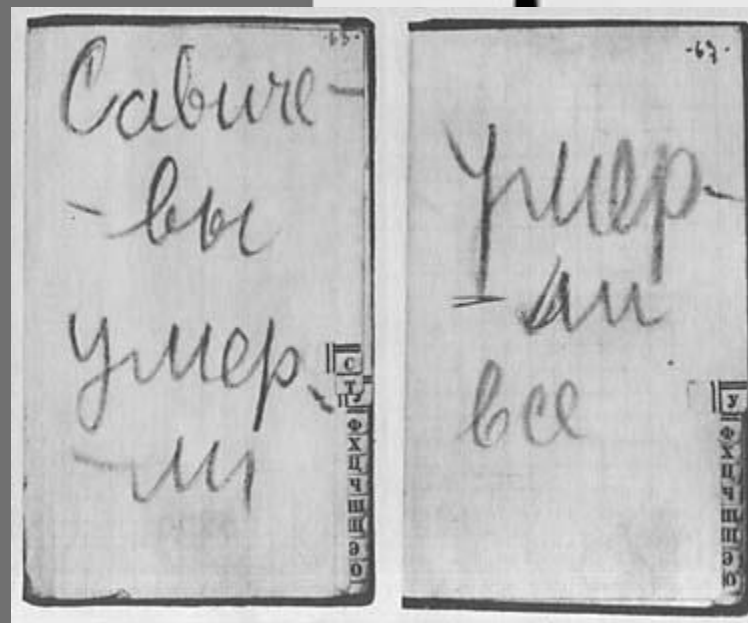 ·63·
Савиче-
-вы
умер-
-ли
С
Т
У
Ф
Х
Ц
Ч
Ш
Щ
Э
Ю
·67·
Умер-
-ли
все
У
Ф
Х
Ц
Ч
Ш
Щ
Э
Ю